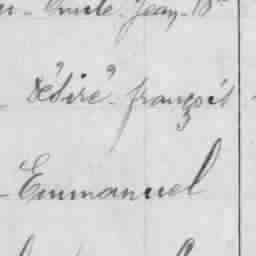 Emile Jean-Bte
"Désiré" françois
- Emmanuel